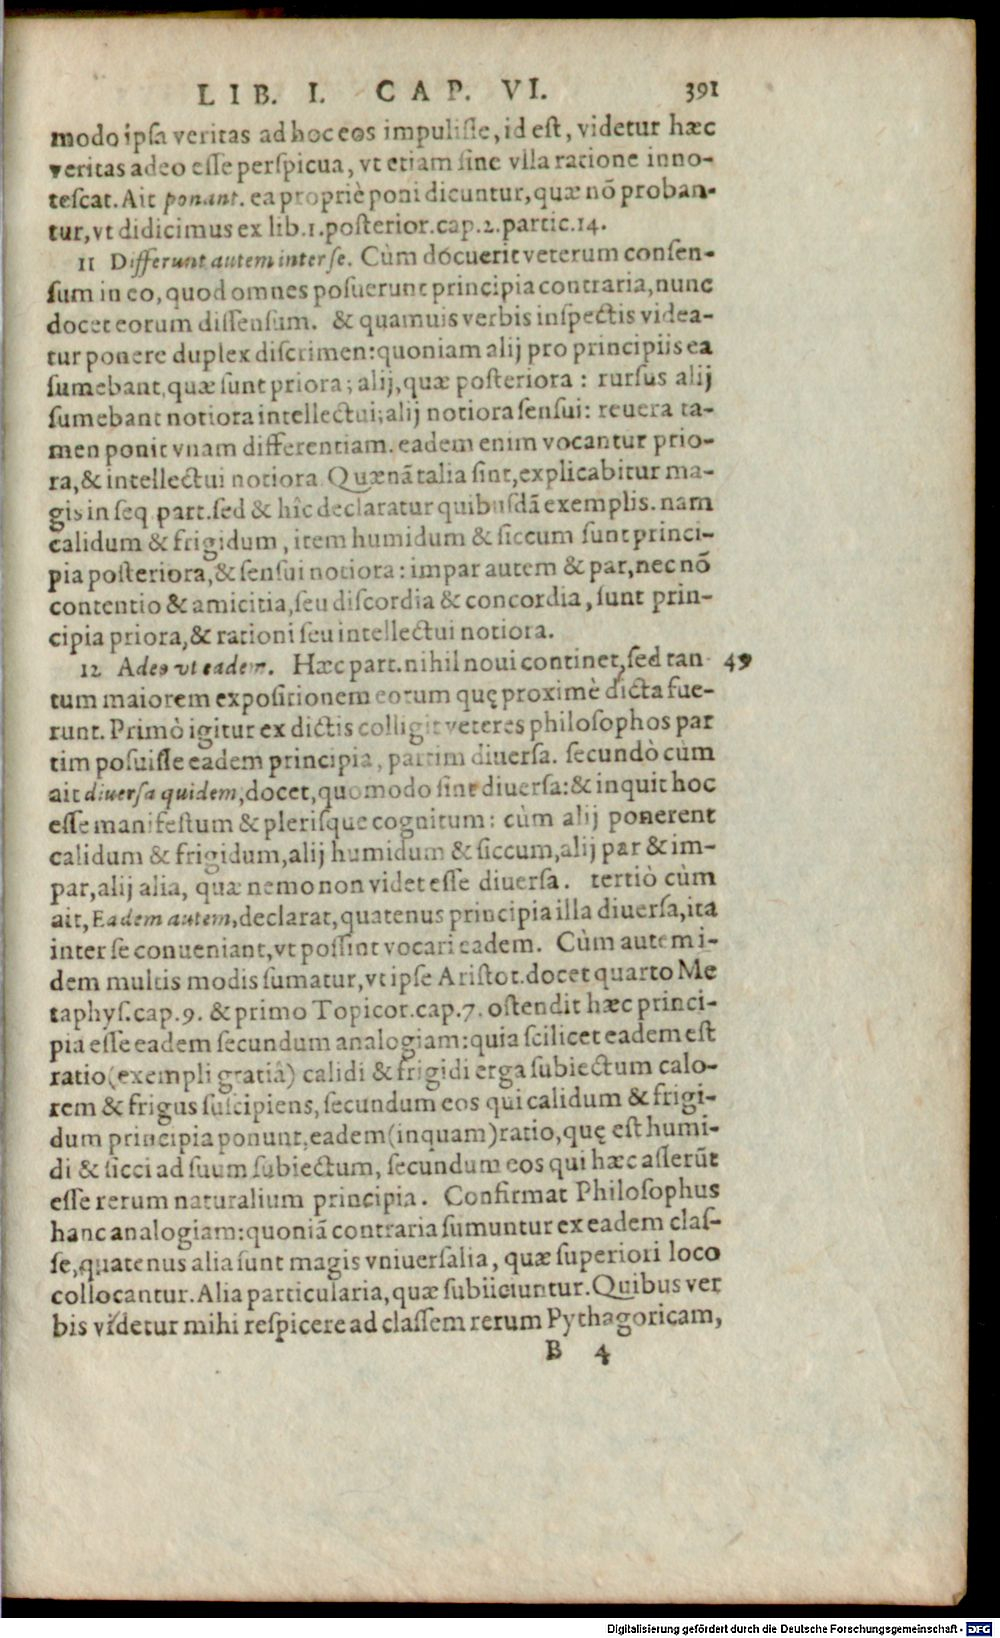 LIB. I. CAP. VI. 391
modo ipſa veritas ad hoc eos impuliſſe, id eſt, videtur hæc
veritas adeo eſſe perſpicua, vt etiam ſine vlla ratione inno-
teſcat. Ait ponant. ea propriè poni dicuntur, quæ nõ proban-
tur, vt didicimus ex lib.1. poſterior. cap.2. partic.14.
11 Differunt autem inter ſe. Cùm docuerit veterum conſen-
ſum in eo, quod omnes poſuerunt principia contraria, nunc
docet eorum diſſenſum. & quamuis verbis inſpectis videa-
tur ponere duplex diſcrimen: quoniam alij pro principiis ea
ſumebant, quæ ſunt priora; alij, quæ poſteriora: rurſus alij
ſumebant notiora intellectui; alij notiora ſenſui: reuera ta-
men ponit vnam differentiam. eadem enim vocantur prio-
ra, & intellectui notiora. Quænã talia ſint, explicabitur ma-
gis in ſeq. part. ſed & hîc declaratur quibuſdã exemplis. nam
calidum & frigidum, item humidum & ſiccum ſunt princi-
pia poſteriora, & ſenſui notiora: impar autem & par, nec nõ
contentio & amicitia, ſeu diſcordia & concordia, ſunt prin-
cipia priora, & rationi ſeu intellectui notiora.
12 Adeo vt eadem. Hæc part. nihil noui continet, ſed tan- 49
tum maiorem expoſitionem eorum quę proximè dicta fue-
runt. Primò igitur ex dictis colligit veteres philoſophos par
tim poſuiſſe eadem principia, partim diuerſa. ſecundò cùm
ait diuerſa quidem, docet, quomodo ſint diuerſa: & inquit hoc
eſſe manifeſtum & pleriſque cognitum: cùm alij ponerent
calidum & frigidum, alij humidum & ſiccum, alij par & im-
par, alij alia, quæ nemo non videt eſſe diuerſa. tertiò cùm
ait, Eadem autem, declarat, quatenus principia illa diuerſa, ita
inter ſe conueniant, vt poſſint vocari eadem. Cùm autem i-
dem multis modis ſumatur, vt ipſe Ariſtot. docet quarto Me
taphyſ. cap.9. & primo Topicor. cap.7. oſtendit hæc princi-
pia eſſe eadem ſecundum analogiam: quia ſcilicet eadem eſt
ratio (exempli gratiâ) calidi & frigidi erga ſubiectum calo-
rem & frigus ſuſcipiens, ſecundum eos qui calidum & frigi-
dum principia ponunt, eadem (inquam) ratio, quę eſt humi-
di & ſicci ad ſuum ſubiectum, ſecundum eos qui hæc aſſerũt
eſſe rerum naturalium principia. Confirmat Philoſophus
hanc analogiam: quoniã contraria ſumuntur ex eadem claſ-
ſe, quatenus alia ſunt magis vniuerſalia, quæ ſuperiori loco
collocantur. Alia particularia, quæ ſubiiciuntur. Quibus ver
bis videtur mihi reſpicere ad claſſem rerum Pythagoricam,
B 4
Digitalisierung gefördert durch die Deutsche Forschungsgemeinschaft - DFG